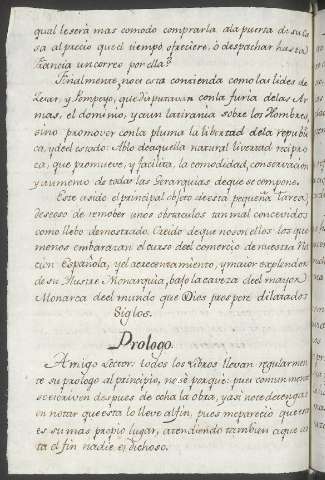 qual leserà mas comodo comprarla ala puerta de su Ca
sa al precio que el tiempo ofreciere, ò despachar hasta
Francia un correo por ella?
Finalmente, no es esta contienda como las lides de
Zesar, y Pompeyo, que disputavan con la furia delas Ar
mas, el dominio, y aun la tirania sobre los Hombres,
sino promover con la pluma la libertad dela republi
ca, y del estado: Ablo de aquella natural livertad recipro
ca, que promueve, y facilita, la comodidad, conservacion
y aumento de todas las Gerarquias de que se compone.
Este asido el principal objeto de esta pequeña tarea,
deseoso de remober unos obstaculos tan mal concevidos
como llebo demostrado. Creido de que no son ellos los que
menos embarazan el curso del comercio de nuestra Na
cion Española, y el acrecentamiento, y maior explendor
de su Ilustre Monarquia, bajo la caveza del mayor
Monarca del mundo que Dios prospere dilatados
Siglos.
Prologo.
Amigo Lector: todos los Libros llevan regularmen
te su prologo al principio, no sè porque: pues comunmente
se escriven despues de echa la obra, y asi no te detengas
en notar que esta lo lleve al fin, pues me pareciò que este
es su mas propio lugar, atendiendo tambien a que as
ta el fin nadie es dichoso.